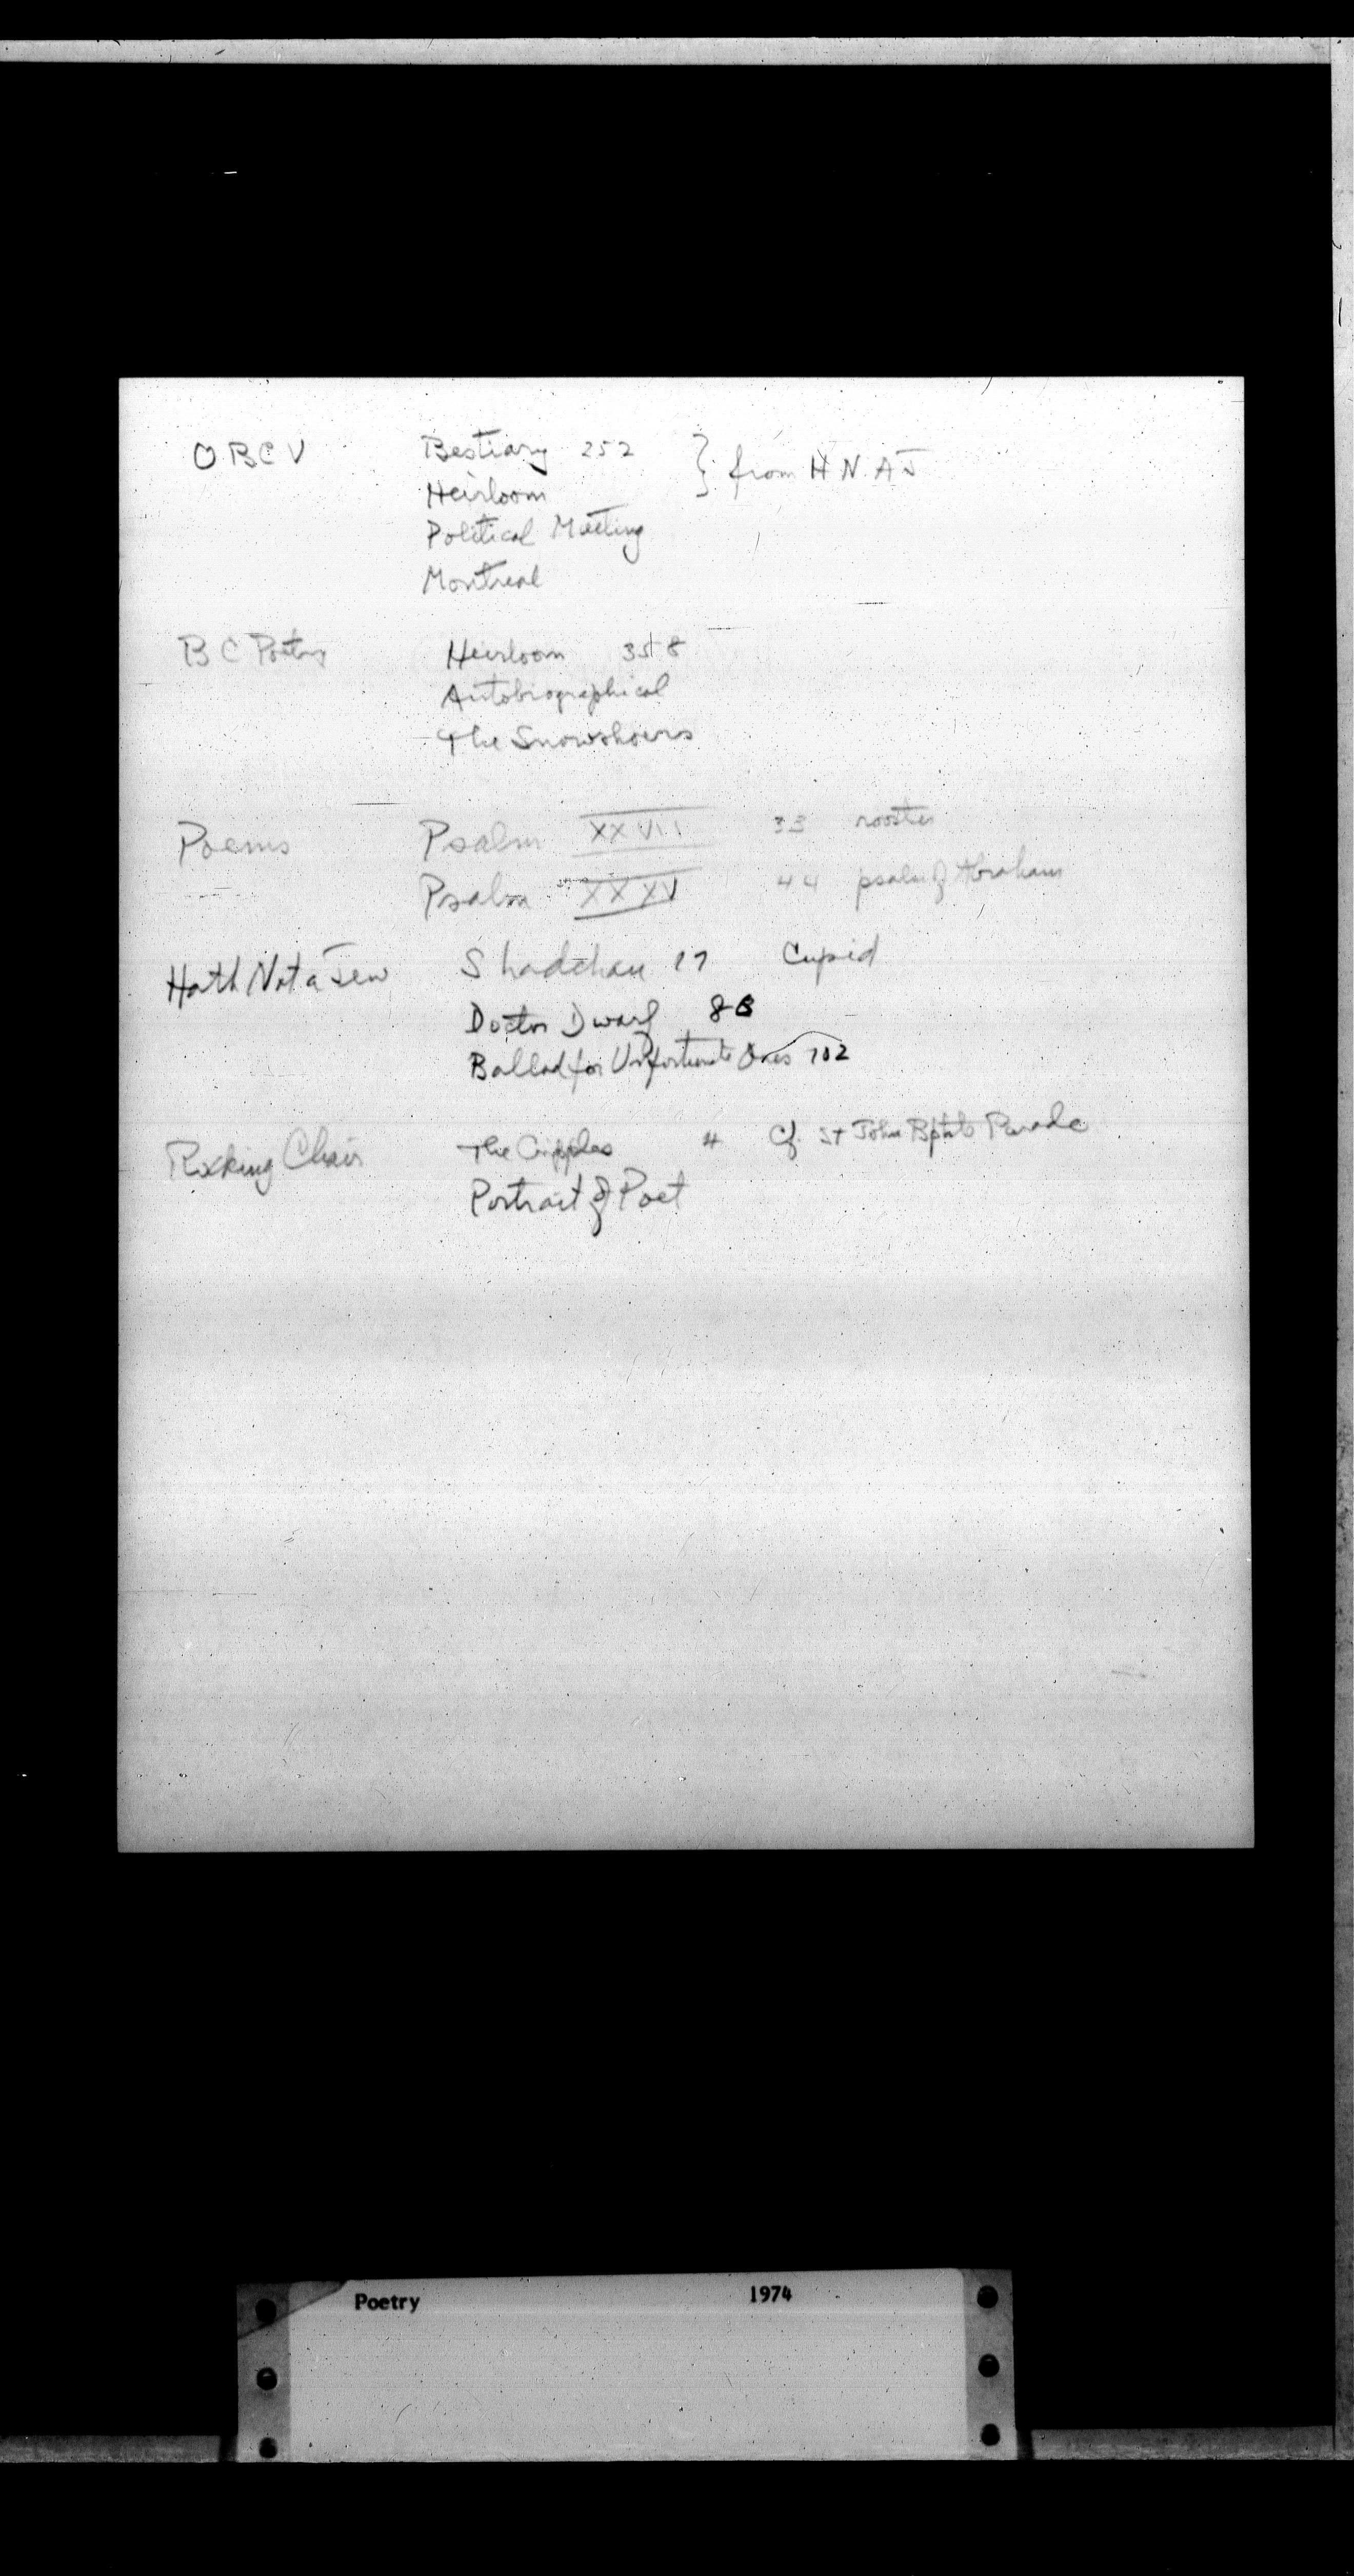 OBCV Bestiary 252 } from H.N.A.J
Heirloom
Political Meeting
Montreal
B C Poetry Heirloom 358
Autobiographical
The Snowshoers
Poems Psalm XXVII 33 rooster
Psalm XXXV 44 psalm of Abraham
Hath Not a Jew Shadchan 17 Cupid
Doctor Dwarf 88
Ballad for Unfortunate Ones 102
Rocking Chair The Cripples 4 Cf. St John Bptste Parade
Portrait of Poet
Poetry 1974